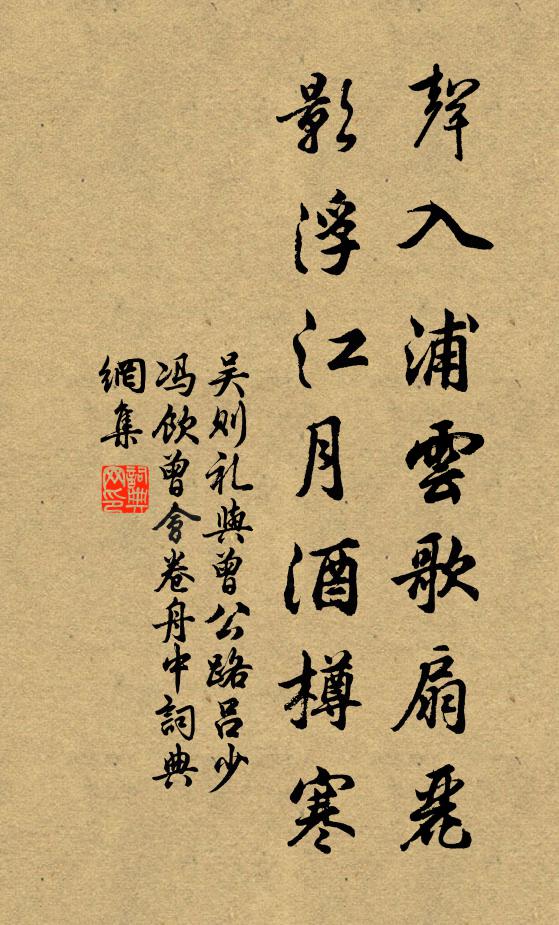 聲入浦雲歌扇麗
影浮江月酒樽寒
吴则礼與曾公路吕少
冯飲曾會卷舟中詞典
網集
詞典
网印